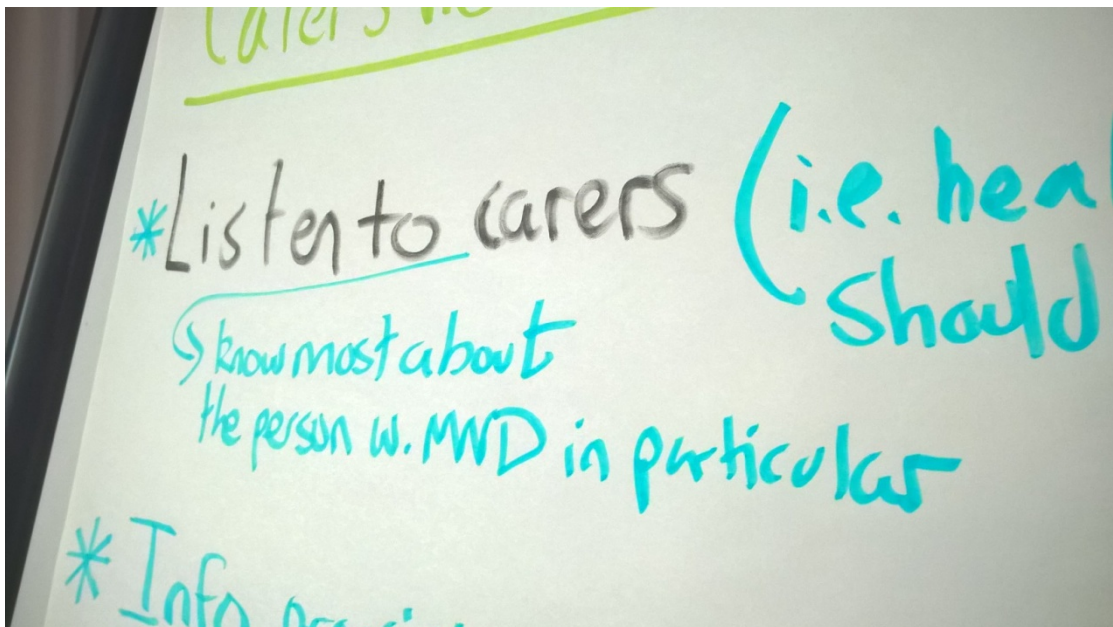 Carers
* Listen to carers (i.e.
Should
know most about
the person w. MND in particular
* Info